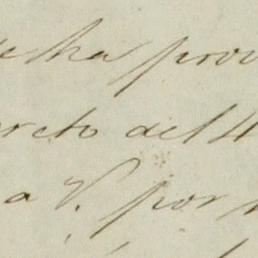 e ha prov
creto del 4
a V. por